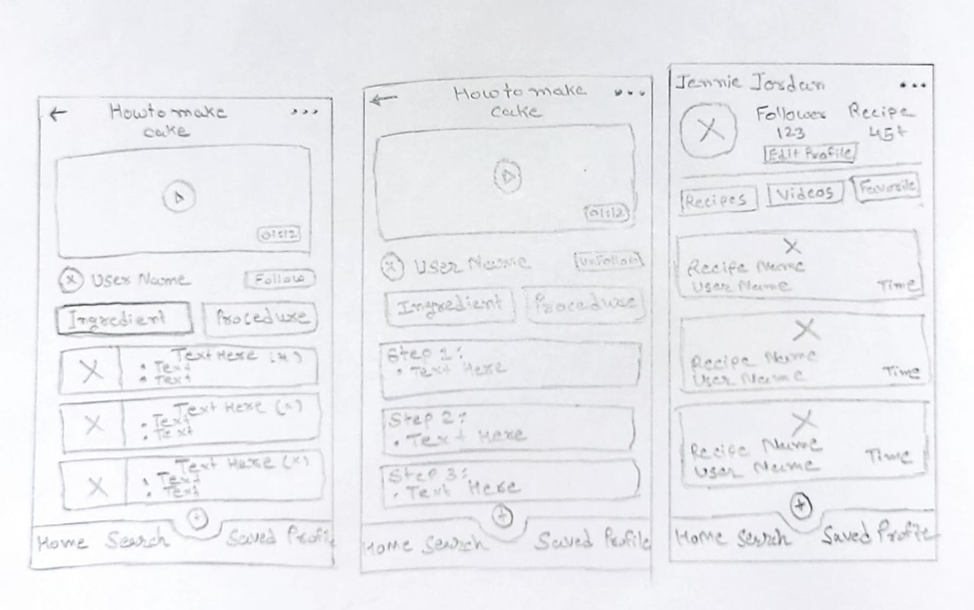 How to make
cake
01:12
User Name Follow
Ingredient Procedure
Text Here (x)
• Text
• Text
Text Here (x)
• Text
• Text
Text Here (x)
• Text
• Text
Home Search + Saved Profile
How to make
cake
01:12
User Name Unfollow
Ingredient Procedure
Step 1:
• Text Here
Step 2:
• Text Here
Step 3:
• Text Here
Home Search + Saved Profile
Jennie Jordan
Follower Recipe
123 457
Edit Profile
Recipes Videos Favorite
Recipe Name
User Name Time
Recipe Name
User Name Time
Recipe Name
User Name Time
Home Search + Saved Profile